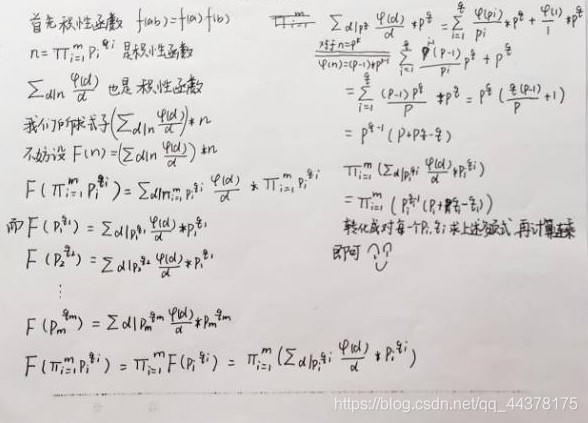 首先积性函数 f(ab)=f(a)f(b)
n=∏_{i=1}^{m} p_i^{q_i} 是积性函数
∑_{d|n} φ(d)/d 也是积性函数
我们所求式子(∑_{d|n} φ(d)/d)*n
不妨设 F(n)=(∑_{d|n} φ(d)/d)*n
F(∏_{i=1}^{m} p_i^{q_i})=∑_{d|∏_{i=1}^{m} p_i^{q_i}} φ(d)/d * ∏_{i=1}^{m} p_i^{q_i}
而 F(p_1^{q_1})=∑_{d|p_1^{q_1}} φ(d)/d * p_1^{q_1}
F(p_2^{q_2})=∑_{d|p_2^{q_2}} φ(d)/d * p_i^{q_i}
⋮
F(p_m^{q_m})=∑_{d|p_m^{q_m}} φ(d)/d * p_m^{q_m}
F(∏_{i=1}^{m} p_i^{q_i})=∏_{i=1}^{m} F(p_i^{q_i})=∏_{i=1}^{m}(∑_{d|p_i^{q_i}} φ(d)/d * p_i^{q_i})
∑_{d|p^q} φ(d)/d * p^q=∑_{i=1}^{q} φ(p^i)/p^i * p^q+φ(1)/1 * p^q
对于n=p^k
φ(n)=(p-1)*p^{k-1}
∑_{i=1}^{q} p^{i-1}(p-1)/p^i p^q+p^q
=∑_{i=1}^{q} (p-1)p^q/p * p^q=p^q(q(p-1)/p+1)
=p^{q-1}(p+pq-q)
∏_{i=1}^{m}(∑_{d|p_i^{q_i}} φ(d)/d * p_i^{q_i})
=∏_{i=1}^{m}(p_i^{q_i-1}(p_i+p_iq_i-q_i))
转化成对每个p_i,q_i求上述式,再计算连乘
即可
https://blog.csdn.net/qq_44378175